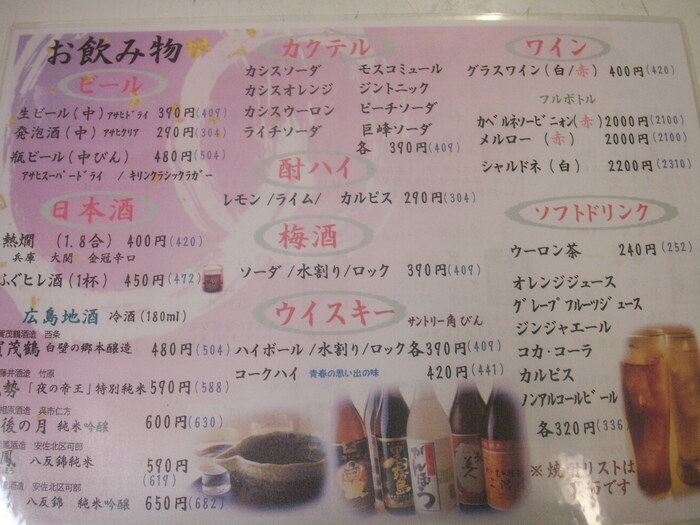 お飲み物
ビール
生ビール(中) アサヒドライ 390円(409)
発泡酒(中) アサヒクリア 290円(304)
瓶ビール(中びん) 480円(504)
アサヒスーパードライ / キリンクラシックラガー
日本酒
熱燗 (1.8合) 400円(420)
兵庫 大関 金冠辛口
ふぐヒレ酒(1杯) 450円(472)
広島地酒 冷酒(180ml)
賀茂鶴酒造 西条
賀茂鶴 白壁の郷本醸造 480円(504)
藤井酒造 竹原
勢「夜の帝王」特別純米 590円(588)
相原酒造 呉市仁方
後の月 純米吟醸 600円(630)
酒造 安佐北区可部
八反錦純米 590円
(619)
酒造 安佐北区可部
八反錦 純米吟醸 650円(682)
カクテル
カシスソーダ モスコミュール
カシスオレンジ ジントニック
カシスウーロン ピーチソーダ
ライチソーダ 巨峰ソーダ
各 390円(409)
酎ハイ
レモン/ライム/ カルピス 290円(304)
梅酒
ソーダ/水割り/ロック 390円(409)
ウイスキー サントリー角びん
ハイボール/水割り/ロック各390円(409)
コークハイ 青春の思い出の味 420円(441)
ワイン
グラスワイン(白/赤) 400円(420)
フルボトル
カベルネソービニオン(赤)2000円(2100)
メルロー(赤) 2000円(2100)
シャルドネ(白) 2200円(2310)
ソフトドリンク
ウーロン茶 240円(252)
オレンジジュース
グレープフルーツジュース
ジンジャエール
コカ・コーラ
カルピス
ノンアルコールビール
各320円(336
※焼酎リストは
です